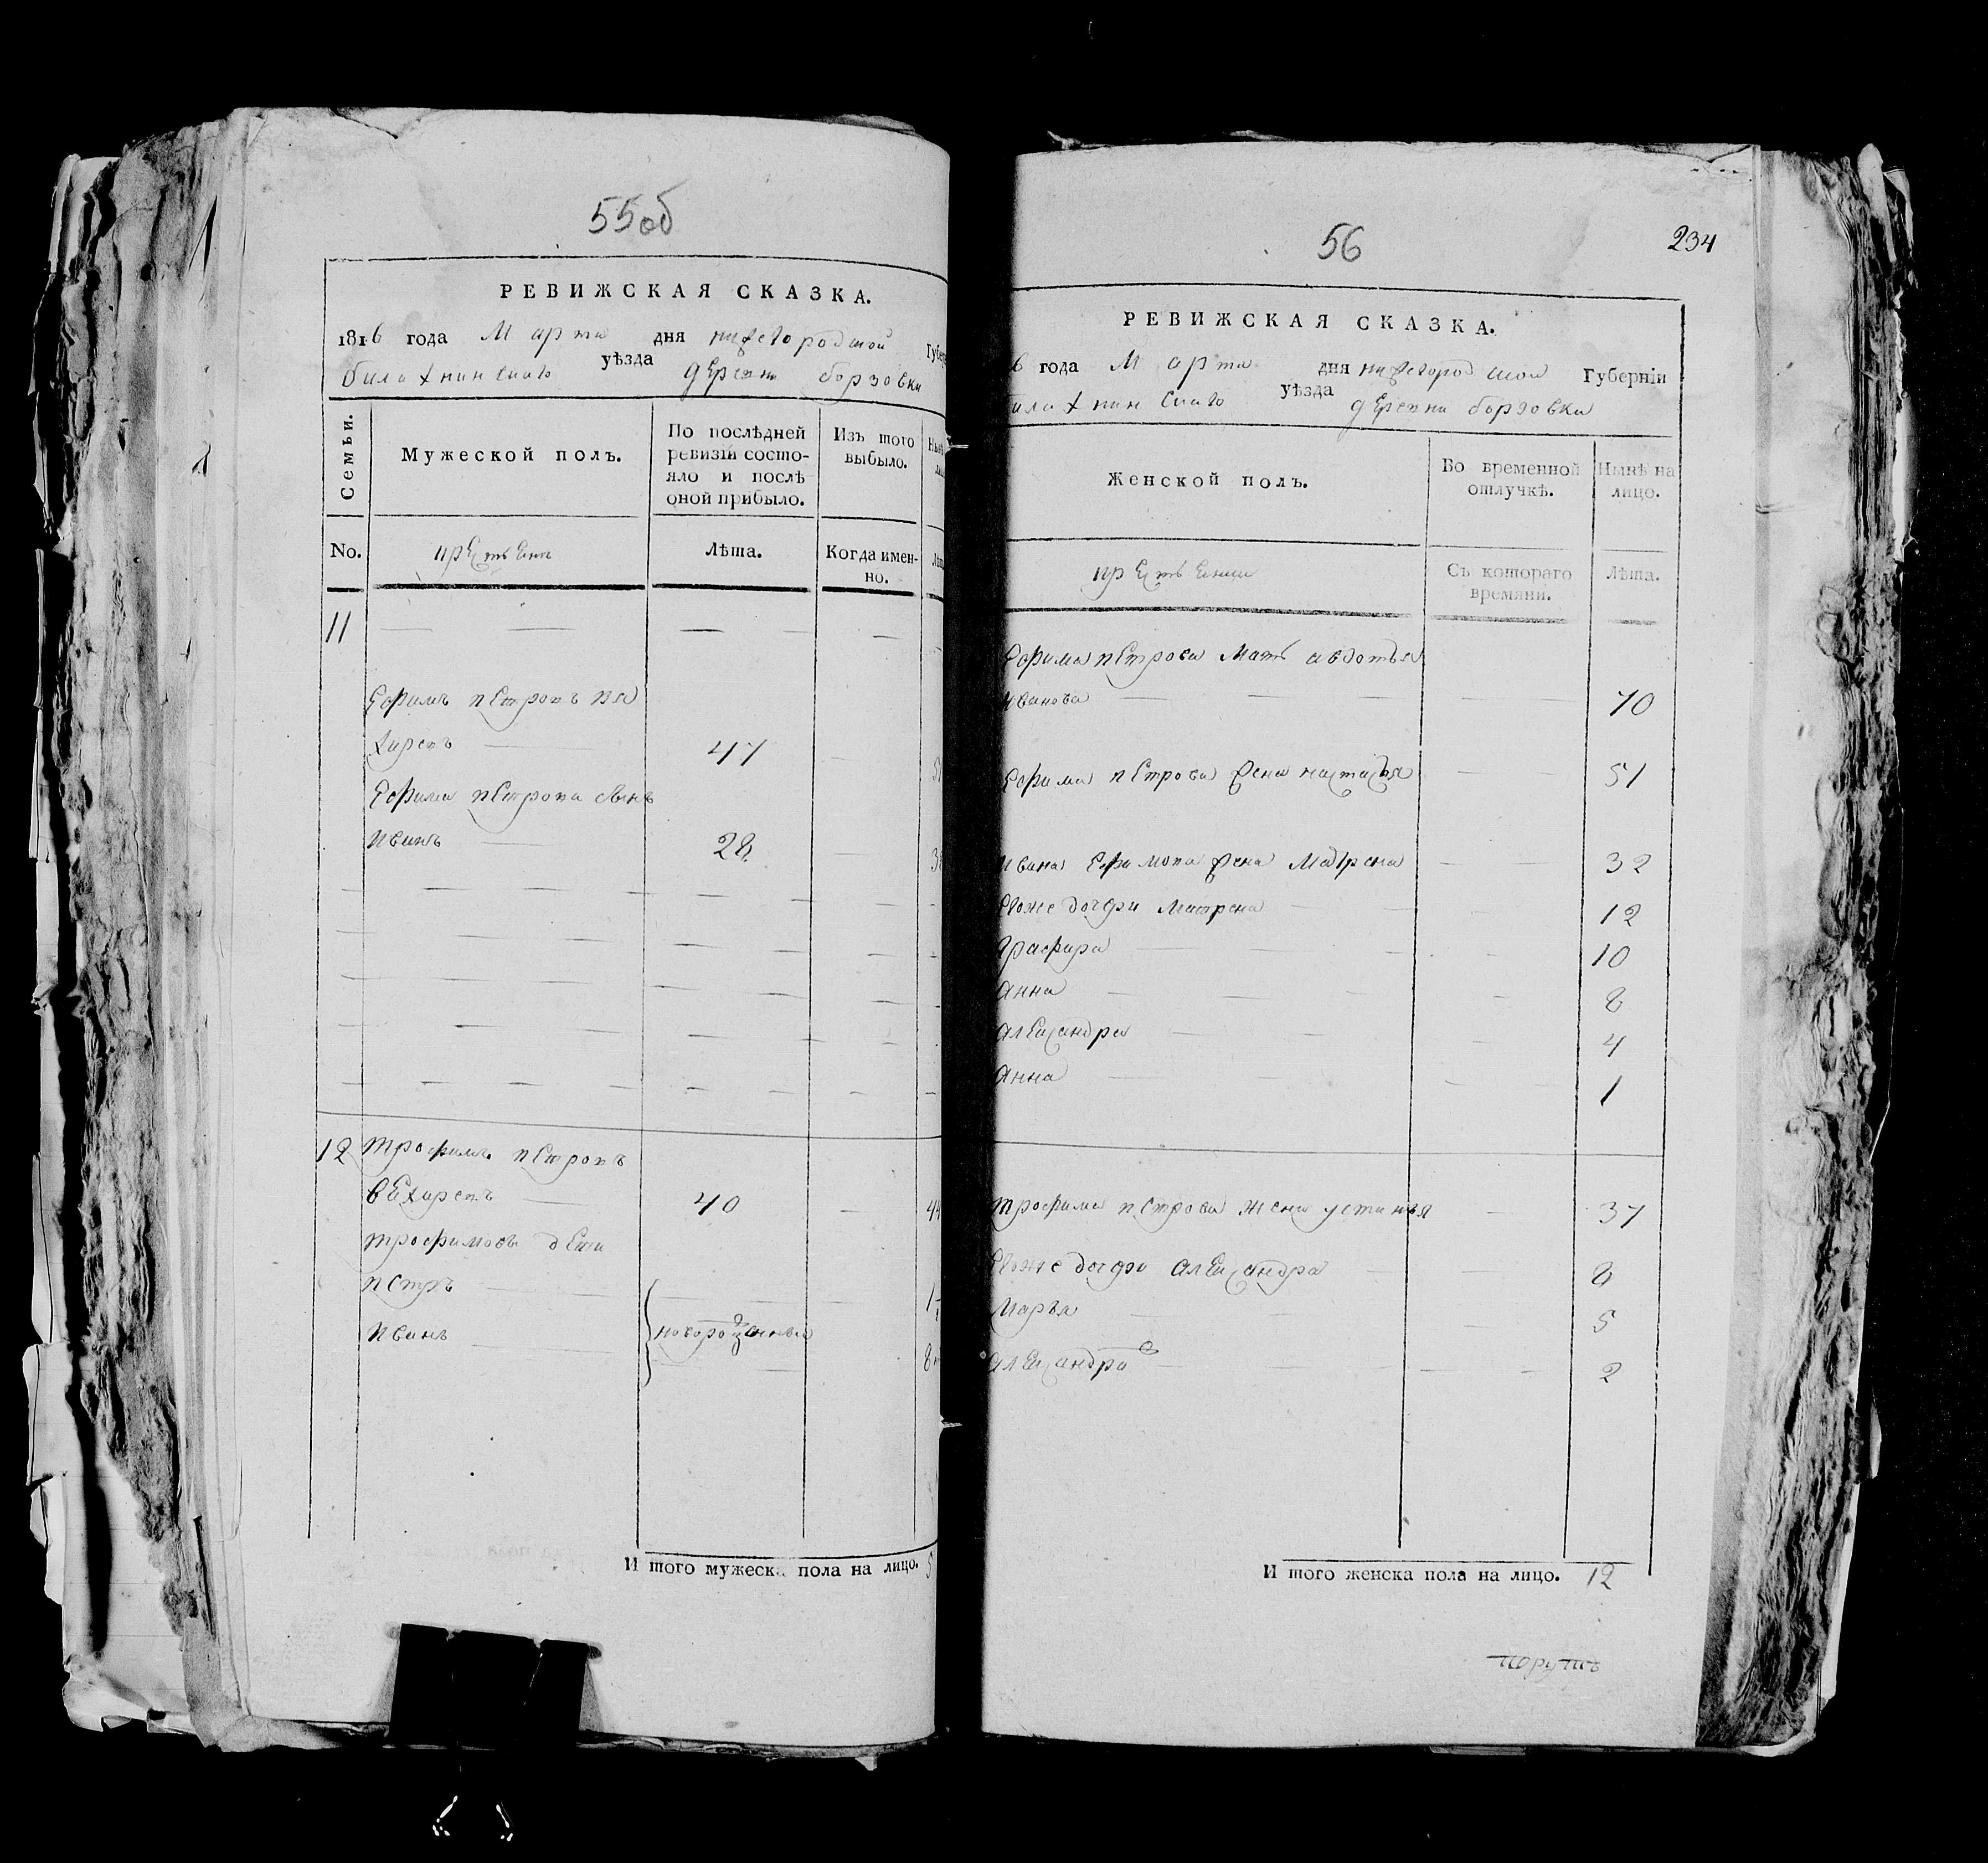 55об
РЕВИЖСКАЯ СКАЗКА.
1816 года Марта дня нижегородской Губер
балахнинскаго уѣзда деревни борзовки
Семьи.
Мужеской полъ.
По послѣдней ревизіи состояло и послѣ оной прибыло.
Изъ того выбыло.
No.
крестьянъ
Лѣта.
Когда именно.
11
Ефимъ петровъ
47
Ефима петрова сынъ
иванъ 28
12 трофимъ петровъ
40 44
трофимовы дети
петръ
иванъ новорожденныя
И того мужеска пола на лицо. 5
56
234
РЕВИЖСКАЯ СКАЗКА.
6 года Марта дня нижегородской Губерніи
алахнинскаго уѣзда деревни борзовки
Женской полъ.
Во временной отлучкѣ.
Нынѣ на лицо.
крестьянки
Съ котораго времяни.
Лѣта.
Ефима петрова мать авдотья
иванова 70
Ефима петрова жена настасья 51
ивана Ефимова жена матрена 32
Евоже дочери матрена 12
графира 10
анна 8
александра 4
анна 1
трофима петрова жена устинья 37
Евоже дочери александра 8
марья 5
александра 2
И того женска пола на лицо. 12